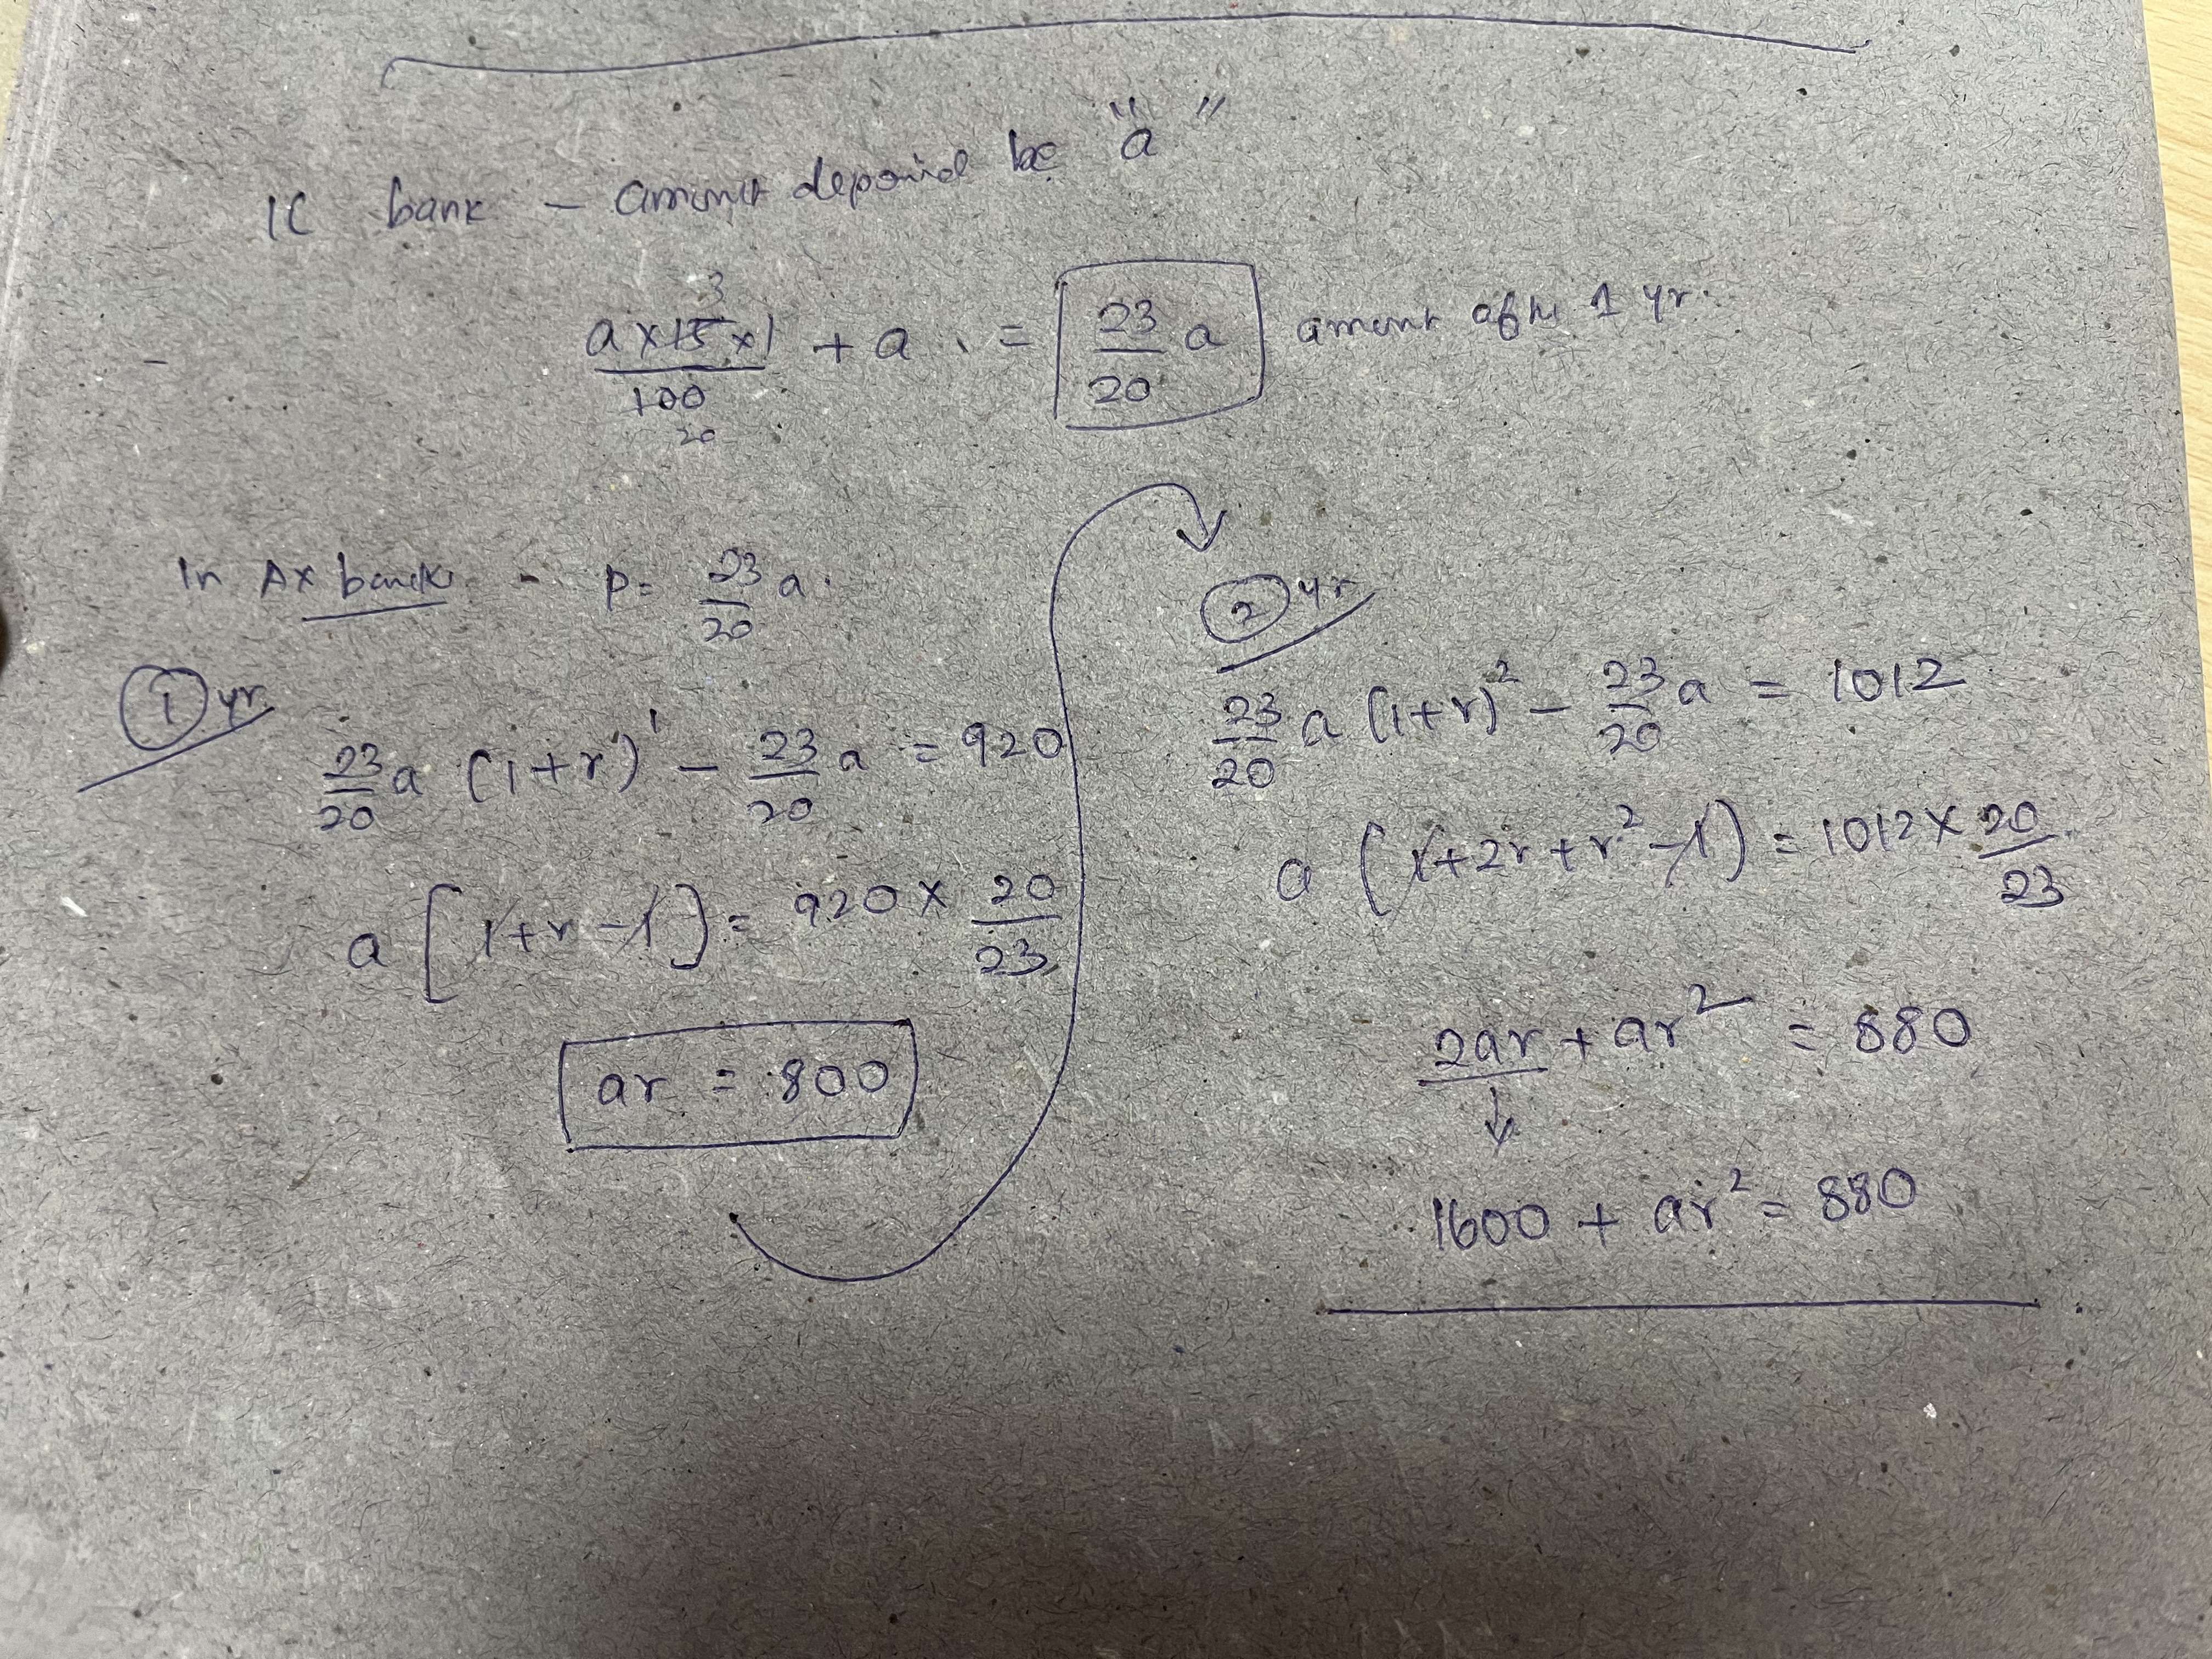 IC bank - amount deposited be "a"
- (a × 15 × 1)/100 + a = 23/20 a amount after 1 yr.
3
20
In AX bank - P = 23/20 a.
① yr
23/20 a (1+r)¹ - 23/20 a = 920
a [1+r-1] = 920 × 20/23
ar = 800
② yr
23/20 a (1+r)² - 23/20 a = 1012
a (1+2r+r²-1) = 1012 × 20/23
2ar + ar² = 880
↓
1600 + ar² = 880